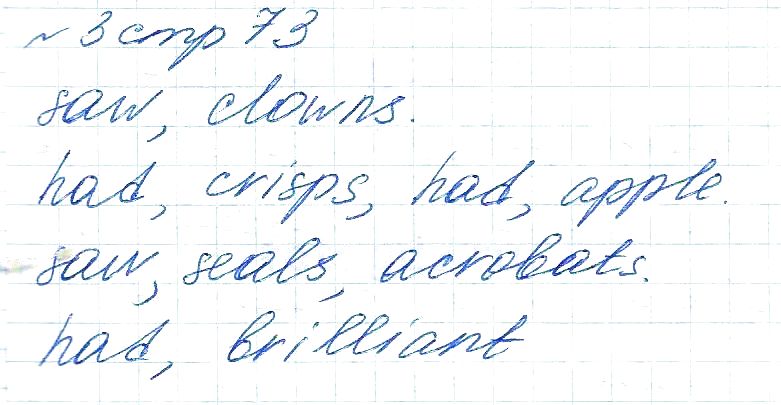 ~ 3 стр 73
saw, clowns.
had, crisps, had, apple.
saw, seals, acrobats.
had, brilliant